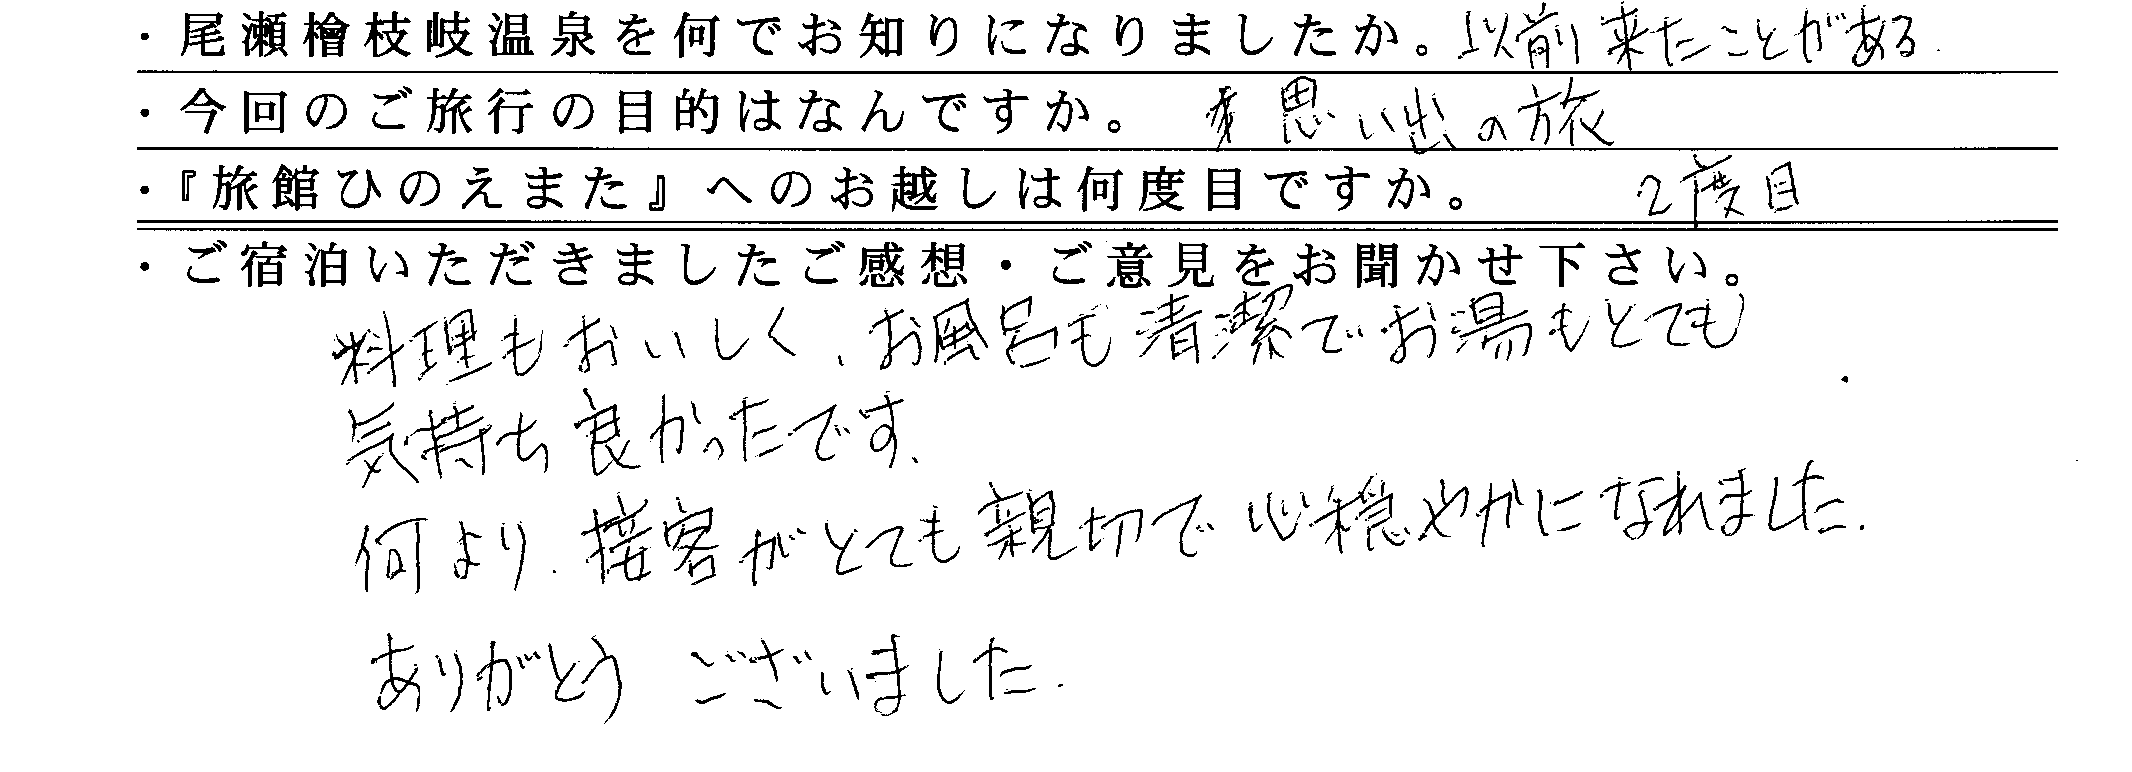 ・尾瀬檜枝岐温泉を何でお知りになりましたか。以前来たことがある.
・今回のご旅行の目的はなんですか。 思い出の旅
・『旅館ひのえまた』へのお越しは何度目ですか。 2度目
・ご宿泊いただきましたご感想・ご意見をお聞かせ下さい。
料理もおいしく、お風呂も清潔でお湯もとても
気持ち良かったです、
何より、接客がとても親切で心穏やかになれました.
ありがとう ございました.